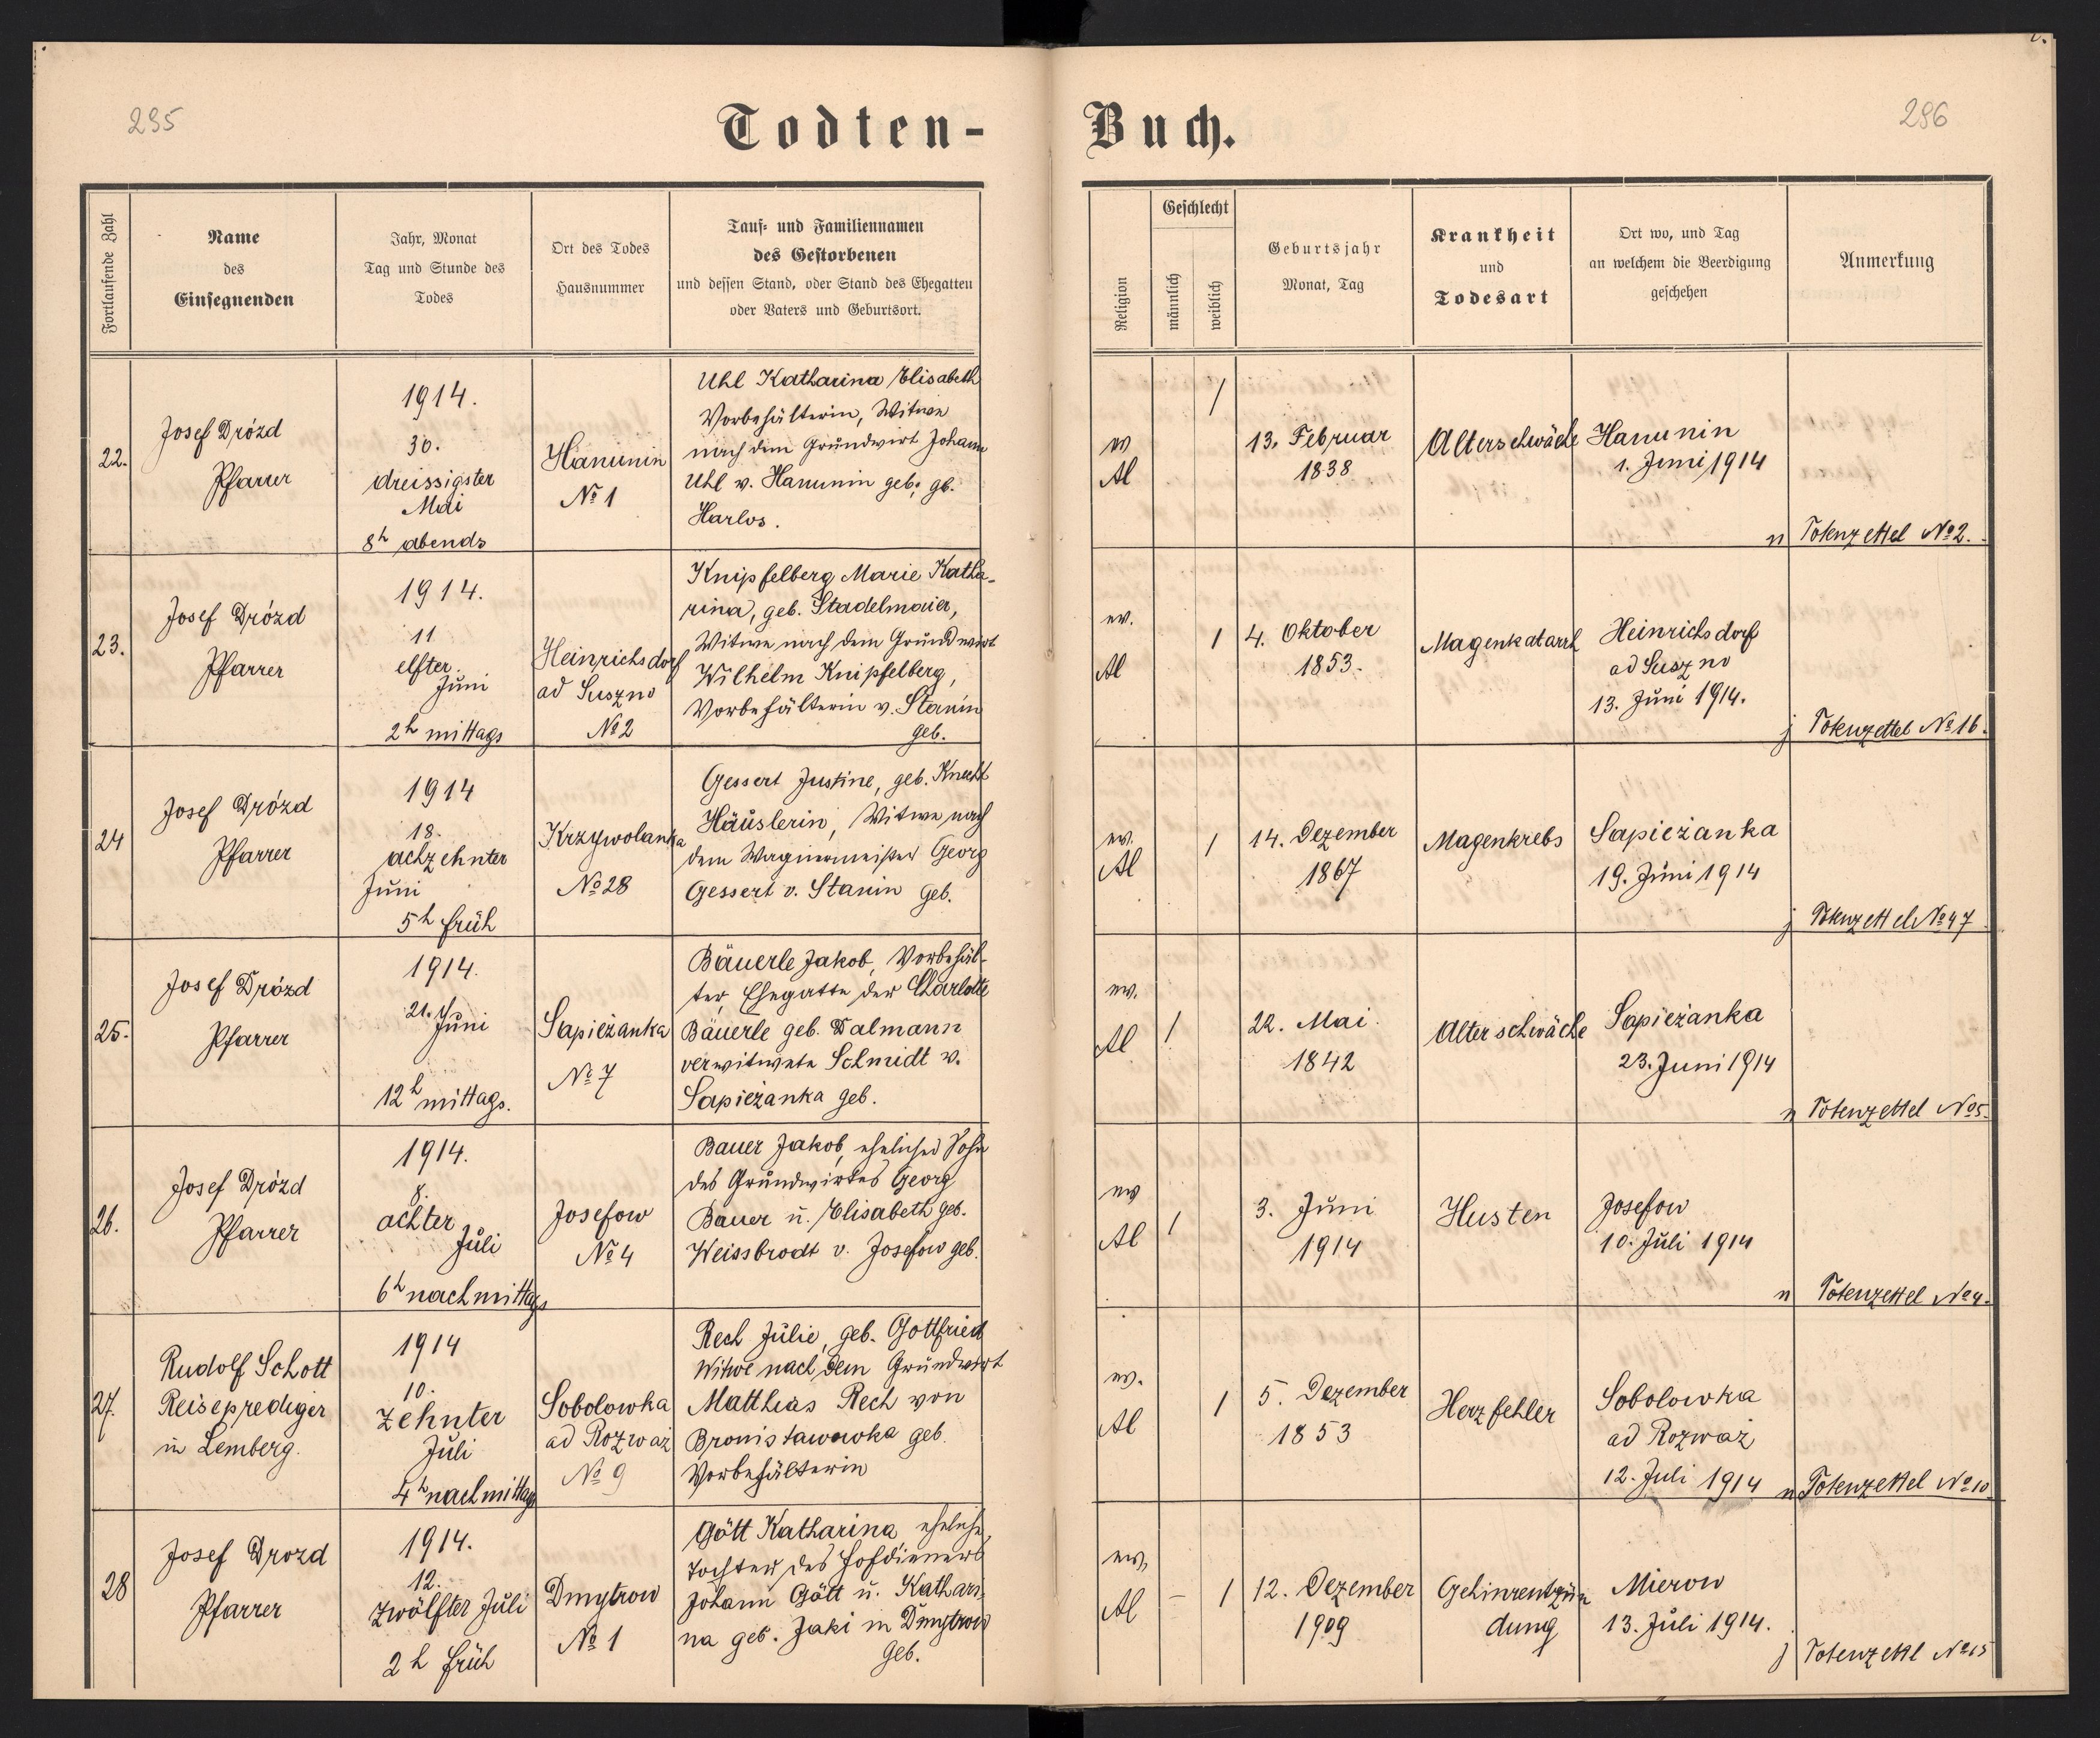 295
Todten-
Buch.
296
Fortlaufende Zahl
Name
des
Einsegnenden
Jahr, Monat
Tag und Stunde des
Todes
Ort des Todes
Hausnummer
Tauf- und Familiennamen
des Gestorbenen
und dessen Stand, oder Stand des Ehegatten
oder Vaters und Geburtsort.
Religion
Geschlecht
männlich
weiblich
Geburtsjahr
Monat, Tag
Krankheit
und
Todesart
Ort wo, und Tag
an welchem die Beerdigung
geschehen
Anmerkung
22.
Josef Drózd
Pfarrer
1914.
30.
dreissigster
Mai
8h abends
Hanunin
№ 1
Uhl Katharina Elisabeth
Vorbehälterin, Witwe
nach dem Grundwirt Johann
Uhl v. Hanunin geb; gb.
Harlos.
ev
AC
1
13. Februar
1838
Alterschwäche
Hanunin
1. Juni 1914
n Totenzettel № 2.
23.
Josef Drózd
Pfarrer
1914.
11
elfter
Juni
2h mittags
Heinrichsdorf
ad Suszno
№ 2
Knipfelberg Marie Katha-
rina, geb. Stadelmaier,
Witwe nach dem Grundwirt
Wilhelm Knipfelberg,
Vorbehälterin v. Stanin
geb.
ev.
AC
1
4. Oktober
1853.
Magenkatarrh
Heinrichsdorf
ad Suszno
13. Juni 1914.
j Totenzettel № 16.
24
Josef Drózd
Pfarrer
1914
18.
achzehnter
Juni
5h früh
Krzywolanka
№ 28
Gessert Justine, geb. Knecht
Häuslerin, Witwe nach
dem Wagnermeister Georg
Gessert v. Stanin geb.
ev.
AC
1
14. Dezember
1867
Magenkrebs
Sapieżanka
19. Juni 1914
j Totenzettel № 47
25.
Josef Drózd
Pfarrer
1914.
21. Juni
12h mittags.
Sapieżanka
№ 7
Bäuerle Jakob, Vorbehäl-
ter, Ehegatte der Charlotte
Bäuerle geb. Dalmann
verwitwete Schmidt v.
Sapieżanka geb.
ev.
AC
1
22. Mai
1842
Alterschwäche
Sapieżanka
23. Juni 1914
n Totenzettel № 5.
26.
Josef Drózd
Pfarrer
1914.
8.
achter
Juli
6h nachmittags
Josefow
№ 4
Bauer Jakob, ehelicher Sohn
des Grundwirtes Georg
Bauer u. Elisabeth geb.
Weissbrodt v. Josefow geb.
ev
AC
1
3. Juni
1914
Husten
Josefow
10. Juli 1914
n Totenzettel № 4.
27.
Rudolf Schott
Reiseprediger
in Lemberg.
1914
10.
zehnter
Juli
4h nachmittags
Sobolowka
ad Rozważ
№ 9
Rech Julie, geb. Gottfried
Witwe nach dem Grundwirt
Matthias Rech von
Bronisławowka geb.
Vorbehälterin
ev.
AC
1
5. Dezember
1853
Herzfehler
Sobolowka
ad Rozważ
12. Juli 1914
n Totenzettel № 10
28
Josef Drozd
Pfarrer
1914.
12.
zwölfter Juli
2h früh
Dmytrow
№ 1
Gött Katharina eheliche
Tochter des Hofdieners
Johann Gött u. Kathari-
na geb. Jaki in Dmytrow
geb.
ev.
AC
–
1
12. Dezember
1909
Gehirnentzün
dung
Mierow
13. Juli 1914.
j Totenzettel № 15